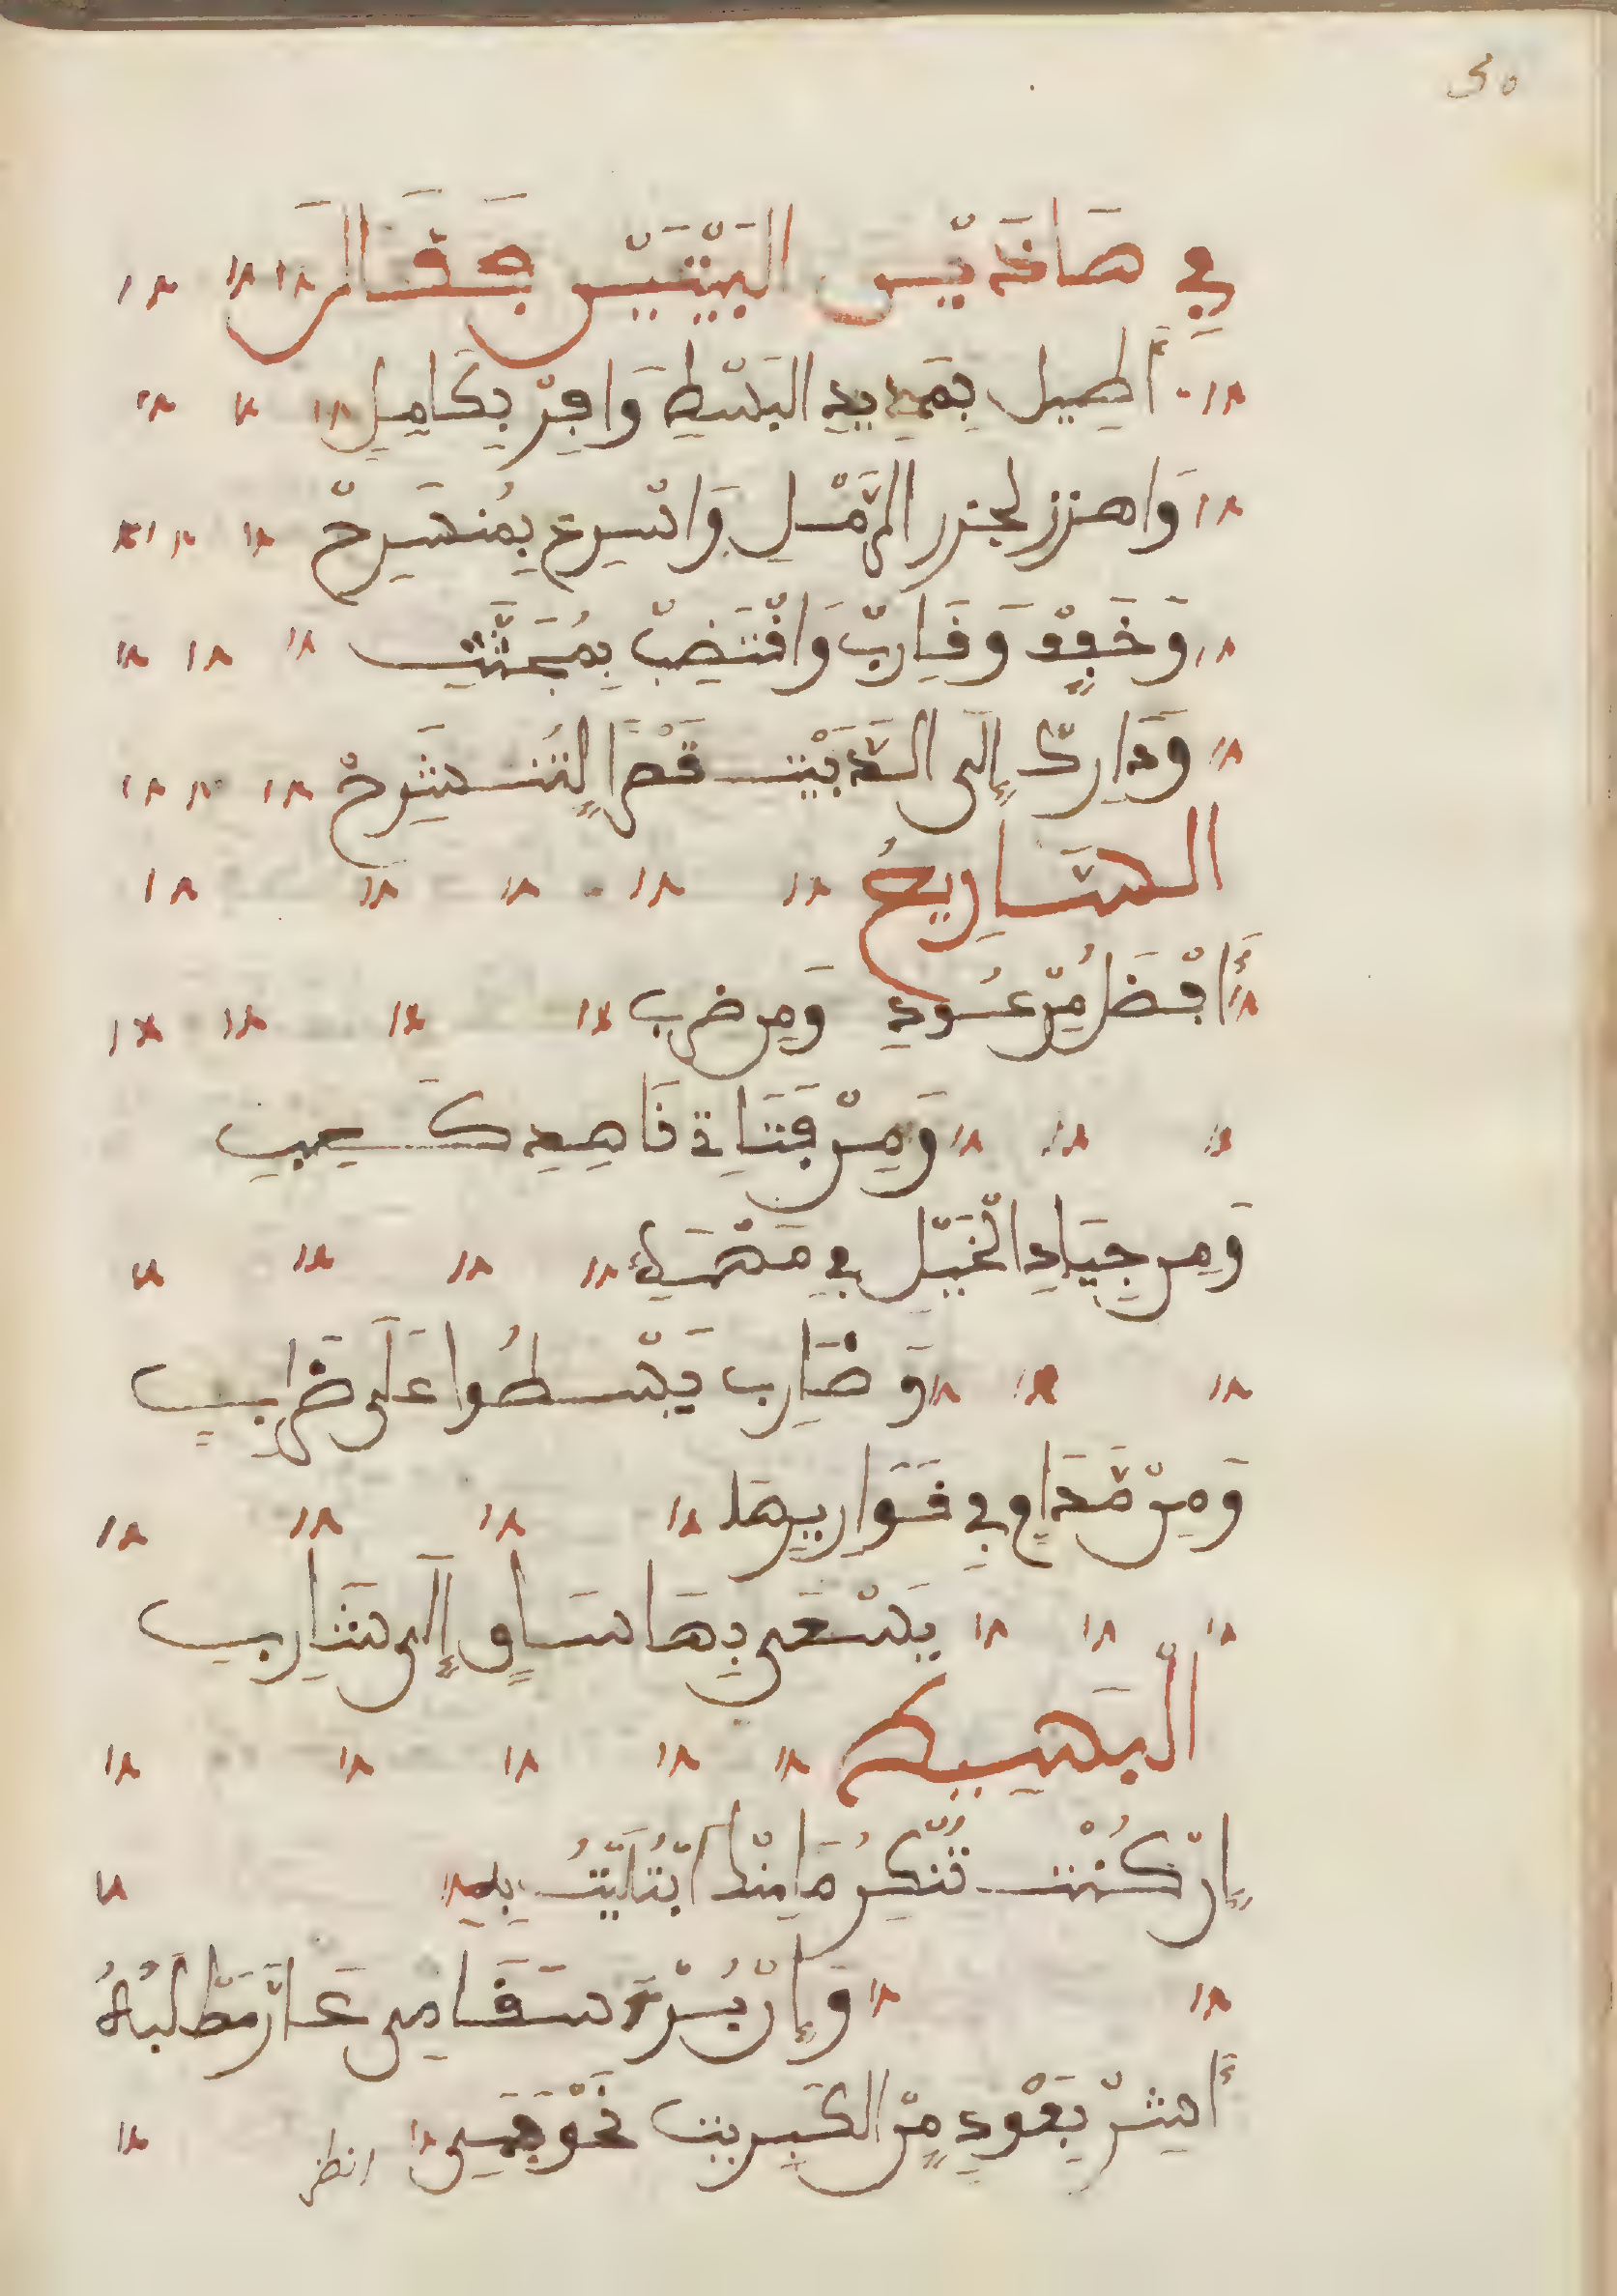 في هَاذَيْنِ البَيْتَيْنِ فَقَالَ
أَطِيل بِمَدِيدِ البَسْطِ وَافِرْ بِكَامِلِ
وَاهزز لجزر الرَّمْلِ وَاسْرِع بِمُنسَرِحْ
وَخَفِفْ وَقَارِبْ وَاقْتَضِبْ بِمُجَتَّثِ
وَدَارِكْ إِلَى الـدَّبَيْت قَصْرًا لِتَنـشَرِحْ
السَّارِيحُ
أَفْضَلُ مِنْ عُودٍ وَمِن ضَرب
وَمِنْ فَتَاةٍ نَاهِدٍ كَعِبِ
وَمِن جِيَادِ الْخَيْلِ فِي مَهْمَهٍ
وَضَارِب يَسْطُوا عَلَى ضَرابِبٍ
وَمِنْ مُّدَامٍ فِي قَوَارِيرِهَا
يَسْعَى بِهَا سَاقٍ إِلَى شَارِبِ
الْبَسِيطُ
إِنْ كُنْت تُنْكِرُ مَا مِنْكَ ابْتُلِيتُ بِهِ
وَإِنْ بُرْءَ سَقَامِي عَازَ مَطْلَبُهُ
أَشِرْ بِعُودٍ مِّنَ الكِبْرِيتِ نَحْوَ فَمِي
انظر